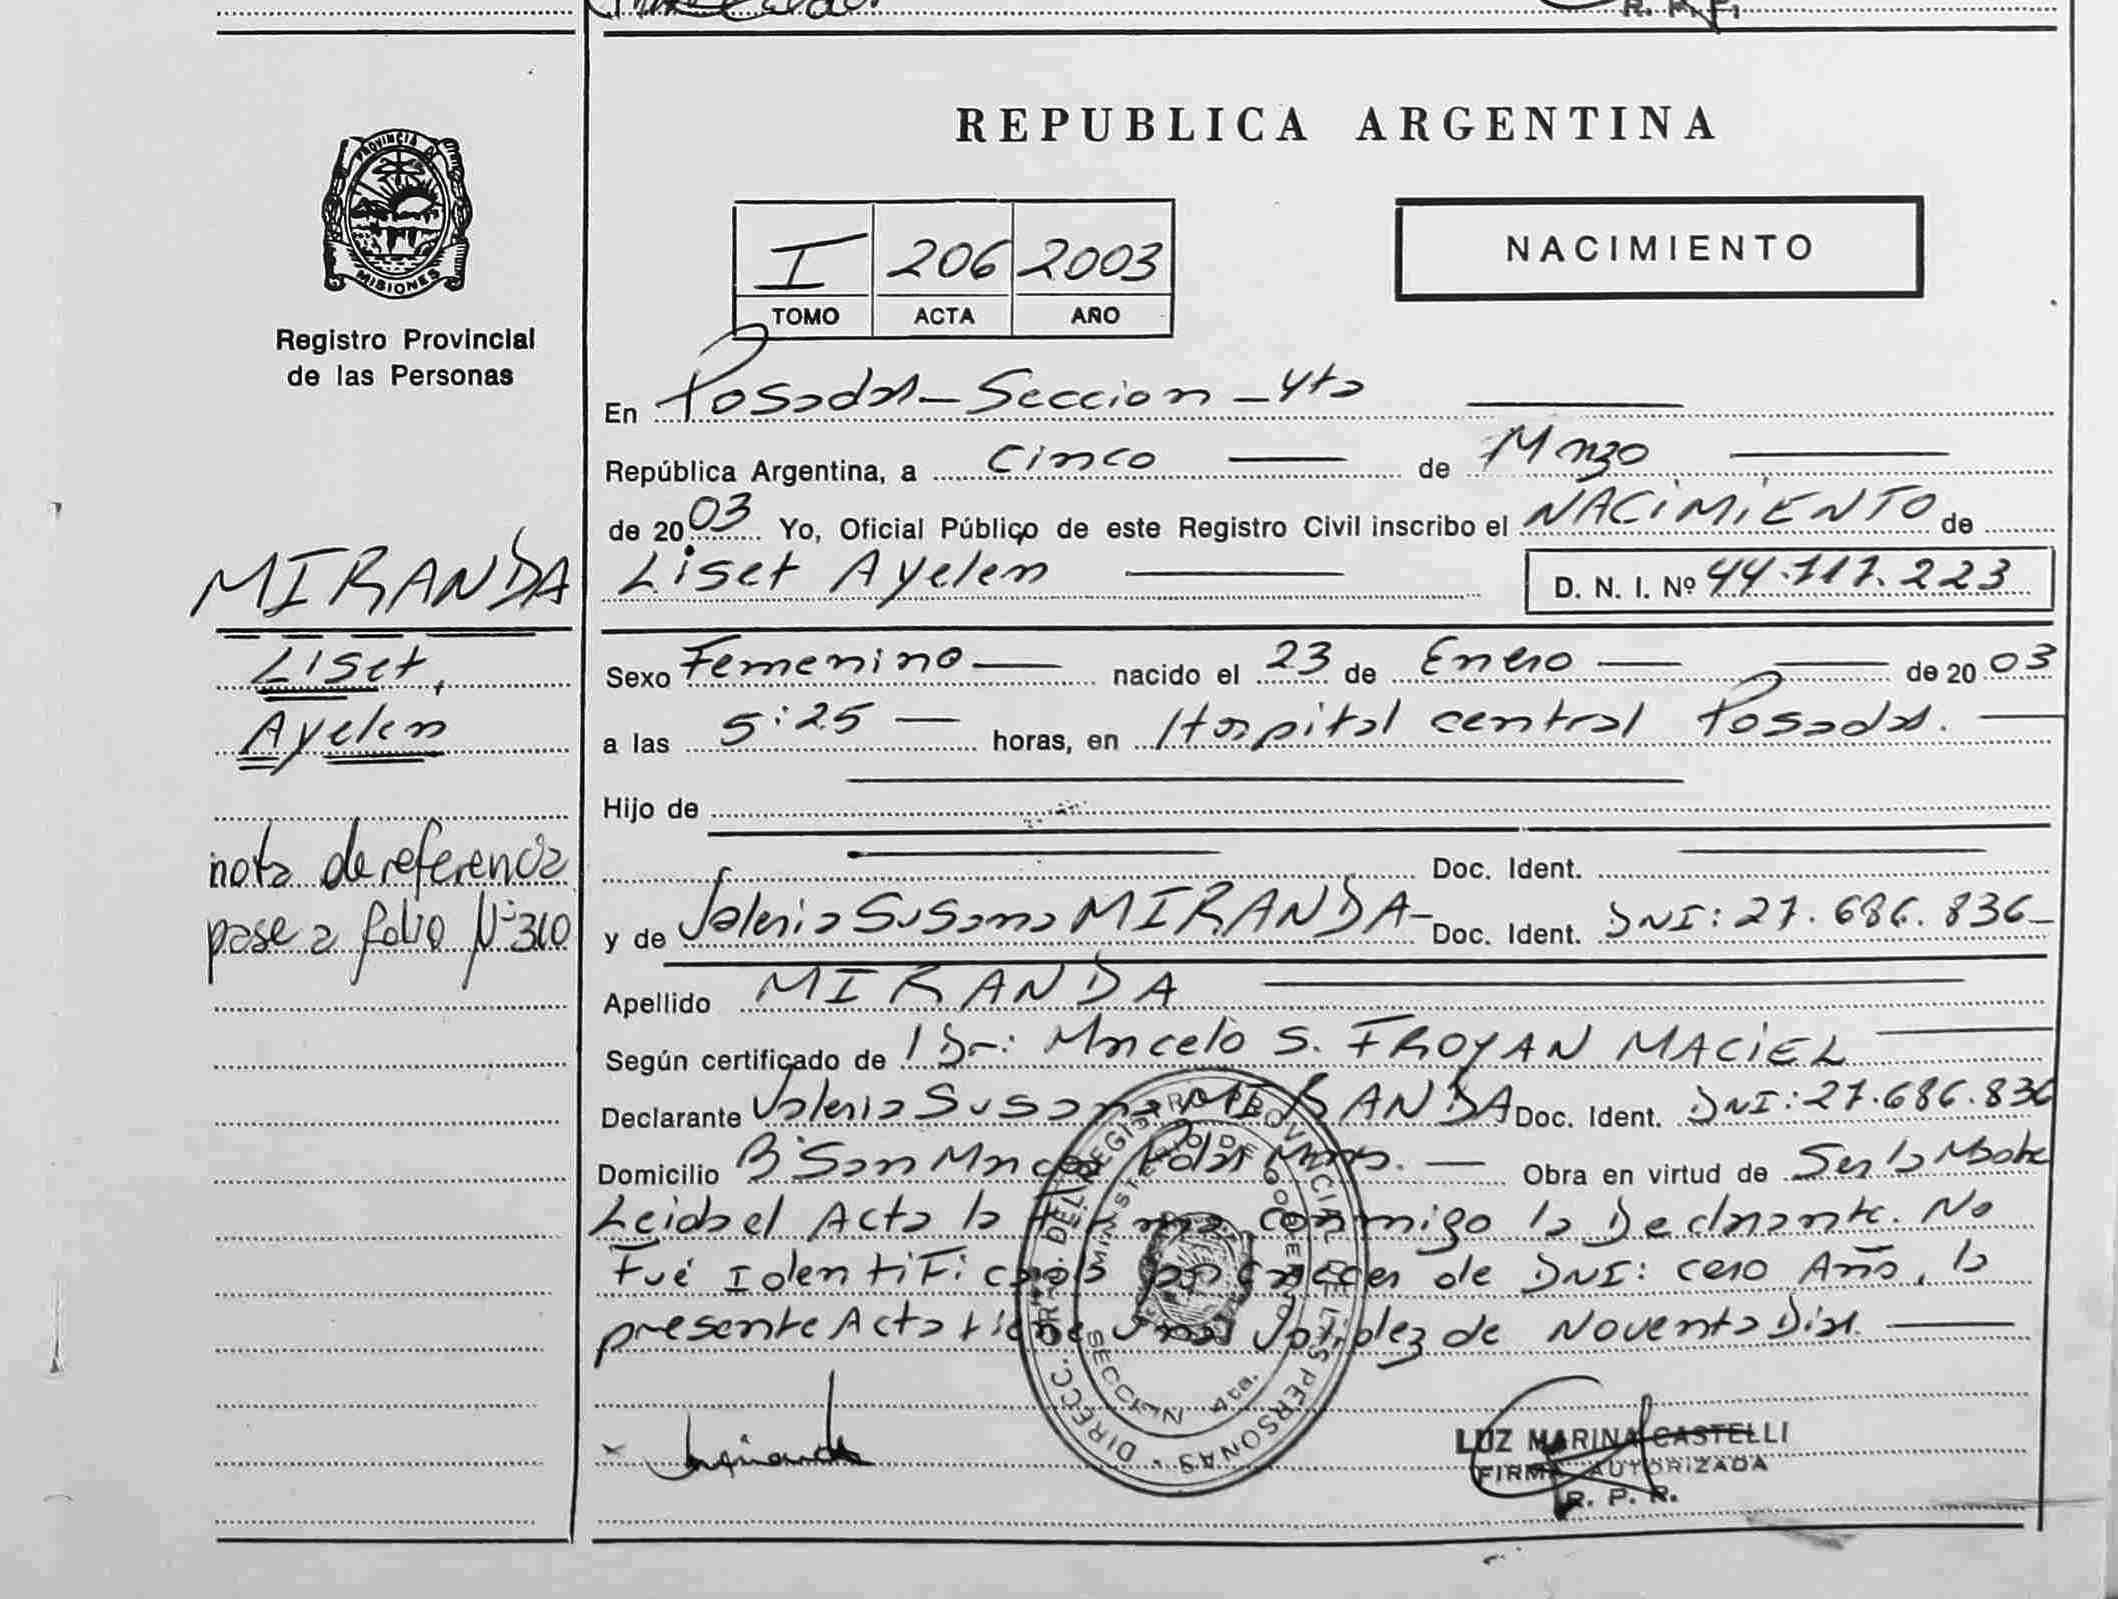 R. P. F.
PROVINCIA DE
MISIONES
Registro Provincial
de las Personas
MIRANDA
Liset,
Ayelen
nota de referencia
pase a folio Nº 310
REPUBLICA ARGENTINA
I 206 2003
TOMO ACTA AÑO
NACIMIENTO
En Posadas - Seccion - 4ta
República Argentina, a cinco de Marzo
de 2003 Yo, Oficial Público de este Registro Civil inscribo el NACIMIENTO de
Liset Ayelen D. N. I. Nº 44.117.223
Sexo Femenino nacido el 23 de Enero de 2003
a las 5:25 horas, en Hospital central Posadas.
Hijo de
Doc. Ident.
y de Valeria Susana MIRANDA - Doc. Ident. DNI: 27.686.836
Apellido MIRANDA
Según certificado de Dr: Marcelo S. FROYAN MACIEL
Declarante Valeria Susana MIRANDA Doc. Ident. DNI: 27.686.836
Domicilio Bº San Marcos Pdas Mnes. Obra en virtud de Ser la Madre
Leida el Acta la firma conmigo la Declarante. No
Fué Identificada por carecer de DNI: cero Año, la
presente Acta tiene una validez de Noventa Dias.
DIRECC. GRAL. DEL REGISTRO PROVINCIAL DE LAS PERSONAS
MINISTERIO DE GOBIERNO
SECCION 4ta.
LUZ MARINA CASTELLI
FIRMA AUTORIZADA
R. P. R.